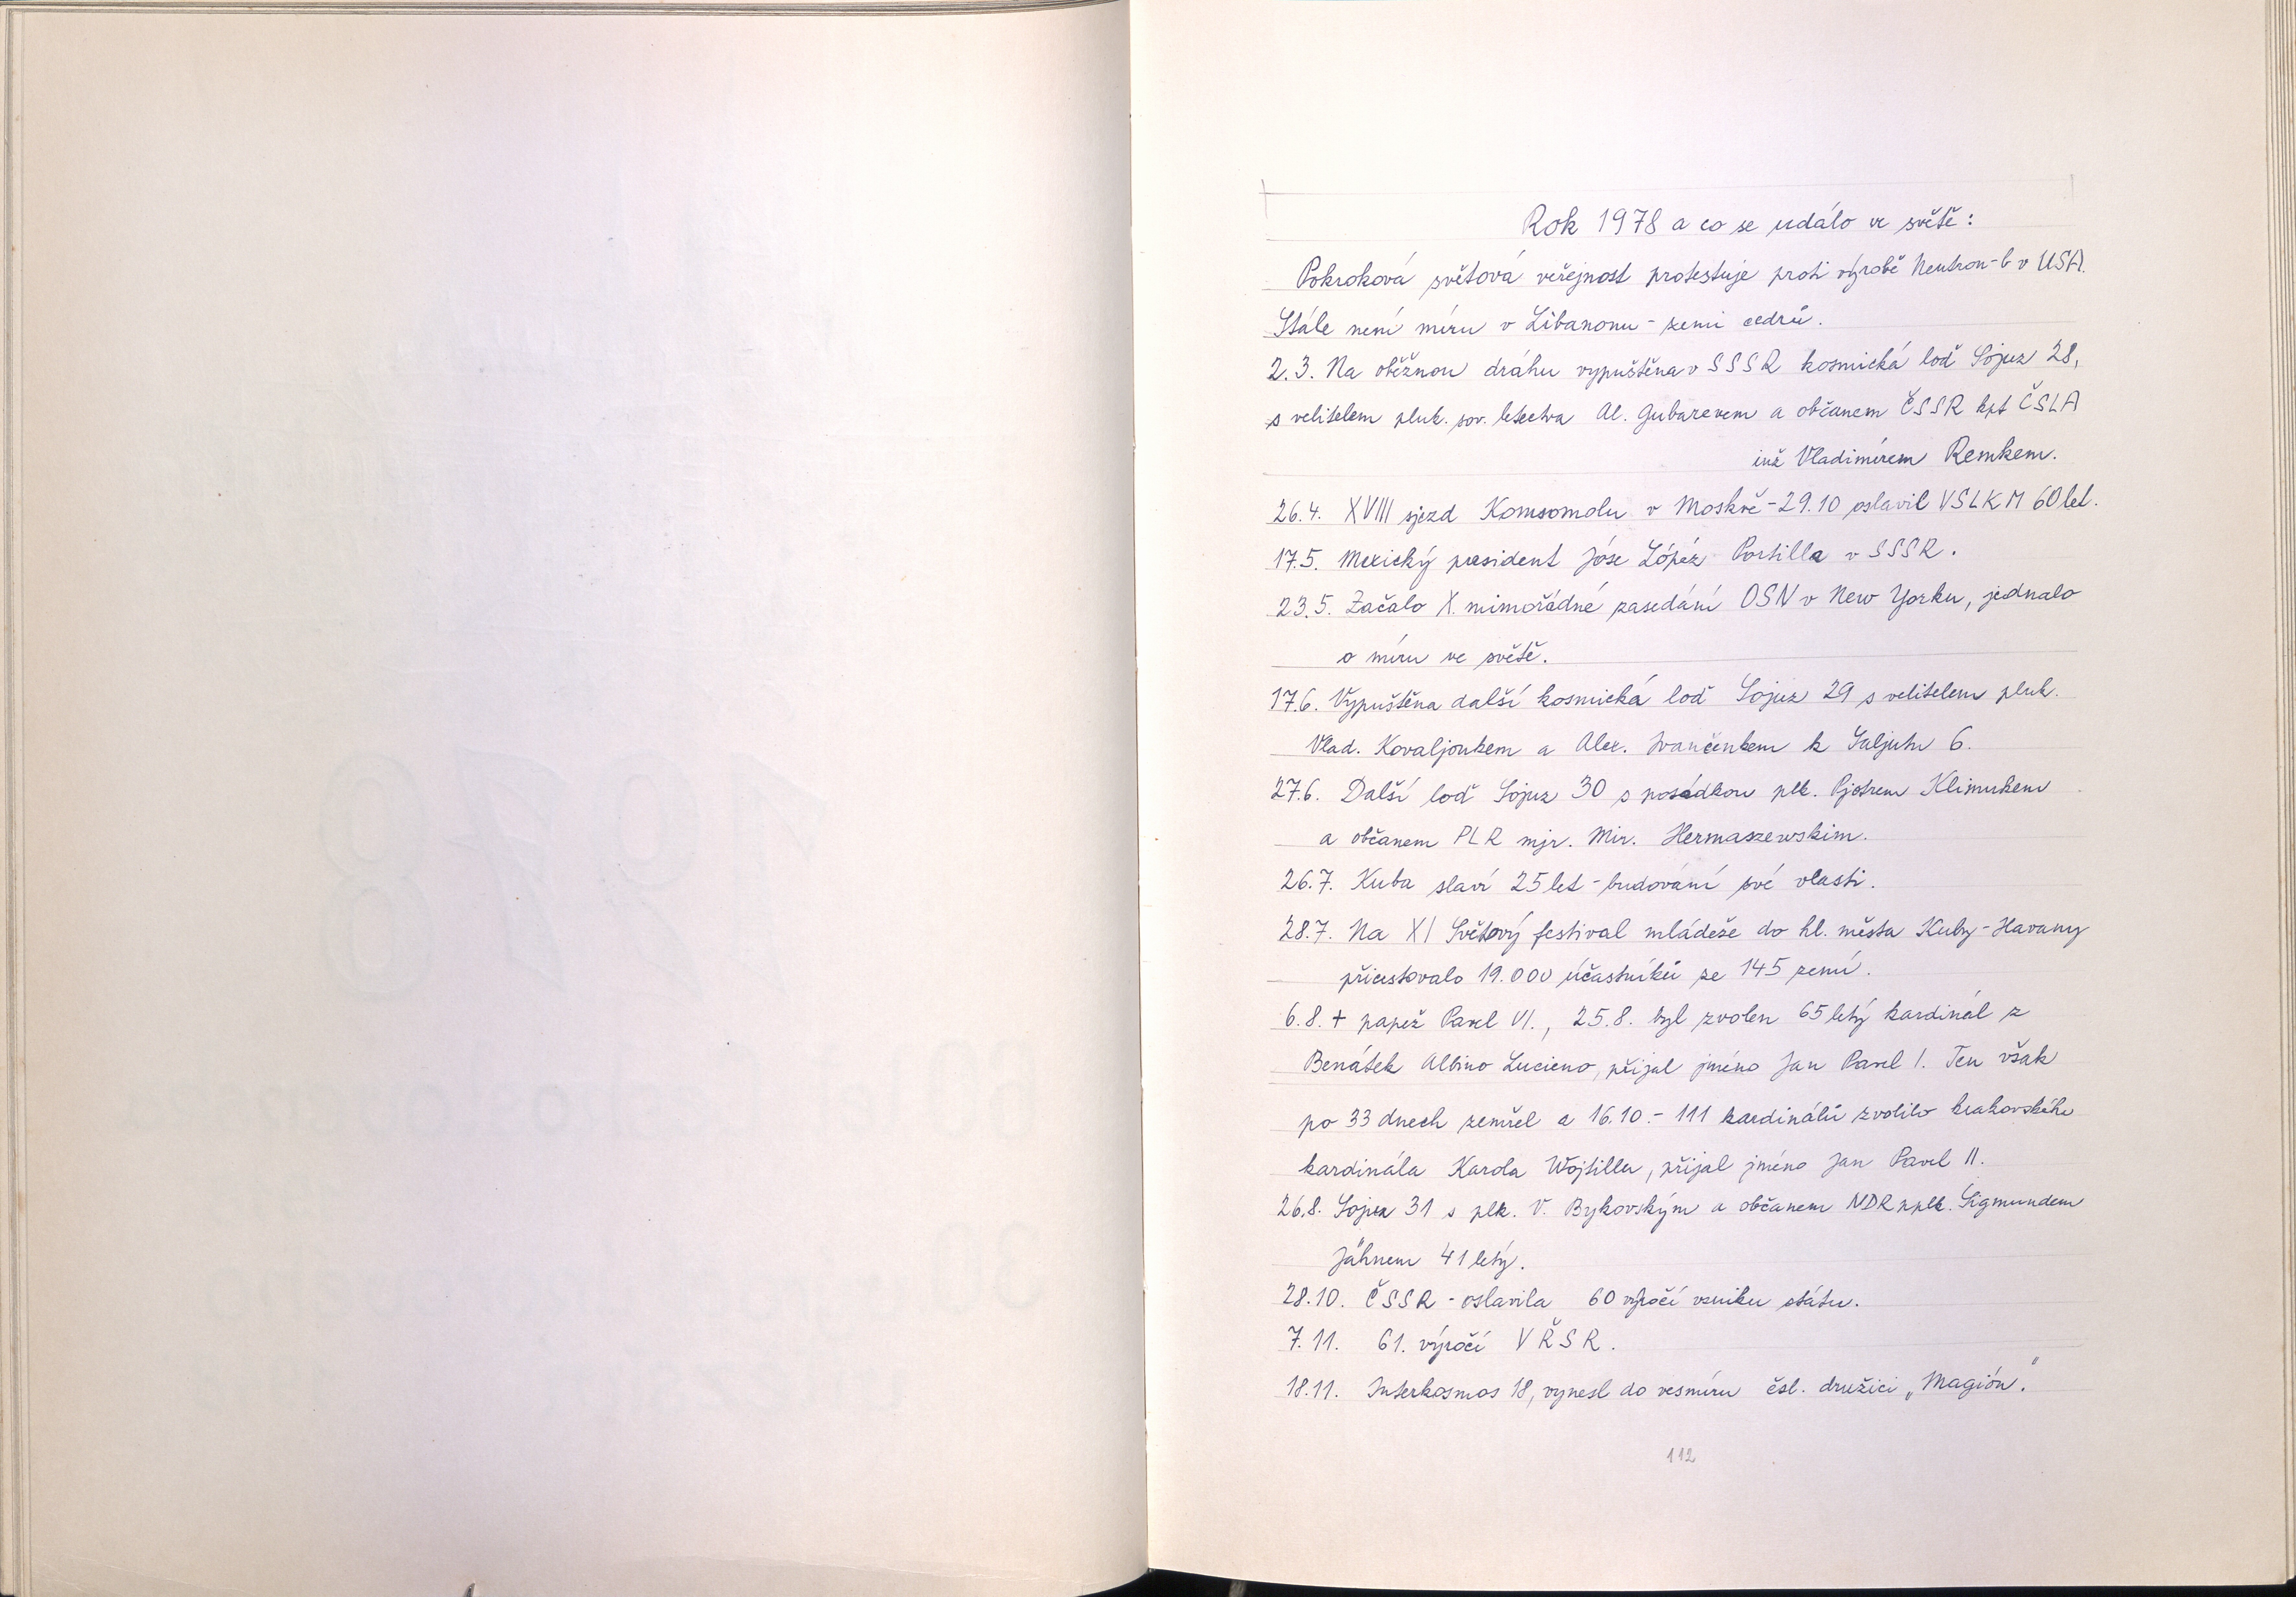 Rok 1978 a co se událo ve světě:
Pokroková světová veřejnost protestuje proti výrobě Neutron-b v USA.
Stále není míru v Libanonu - zemi cedrů.
2.3. Na oběžnou dráhu vypuštěna v SSSR kosmická loď Sojuz 28,
s velitelem pluk. sov. letectva Al. Gubarevem a občanem ČSSR kpt ČSLA
inž Vladimírem Remkem.
26.4. XVIII sjezd Komsomolu v Moskvě - 29.10 oslavil VSLKM 60 let.
17.5. Mexický president Jóse Lópéz Portilla v SSSR.
23.5. Začalo X. mimořádné zasedání OSN v New Yorku, jednalo
o míru ve světě.
17.6. Vypuštěna další kosmická loď Sojuz 29 s velitelem pluk.
Vlad. Kovaljonkem a Alex. Ivančenkem k Saljutu 6.
27.6. Další loď Sojuz 30 s posádkou plk. Pjotrem Klimukem
a občanem PLR mjr. Mir. Hermaszewskim.
26.7. Kuba slaví 25 let - budování své vlasti.
28.7. Na XI Světový festival mládeže do hl. města Kuby - Havany
přicestovalo 19.000 účastníků ze 145 zemí.
6.8. + papež Pavel VI., 25.8. byl zvolen 65 letý kardinál z
Benátek Albino Lucieno, přijal jméno Jan Pavel I. Ten však
po 33 dnech zemřel a 16.10. - 111 kardinálů zvolilo krakovského
kardinála Karola Wojtillu, přijal jméno Jan Pavel II.
26.8. Sojuz 31 s plk. V. Bykovským a občanem NDR pplk. Sigmundem
Jähnem 41 letý.
28.10. ČSSR - oslavila 60 výročí vzniku státu.
7.11. 61. výročí VŘSR.
18.11. Interkosmos 18, vynesl do vesmíru čsl. družici „Magión".
112